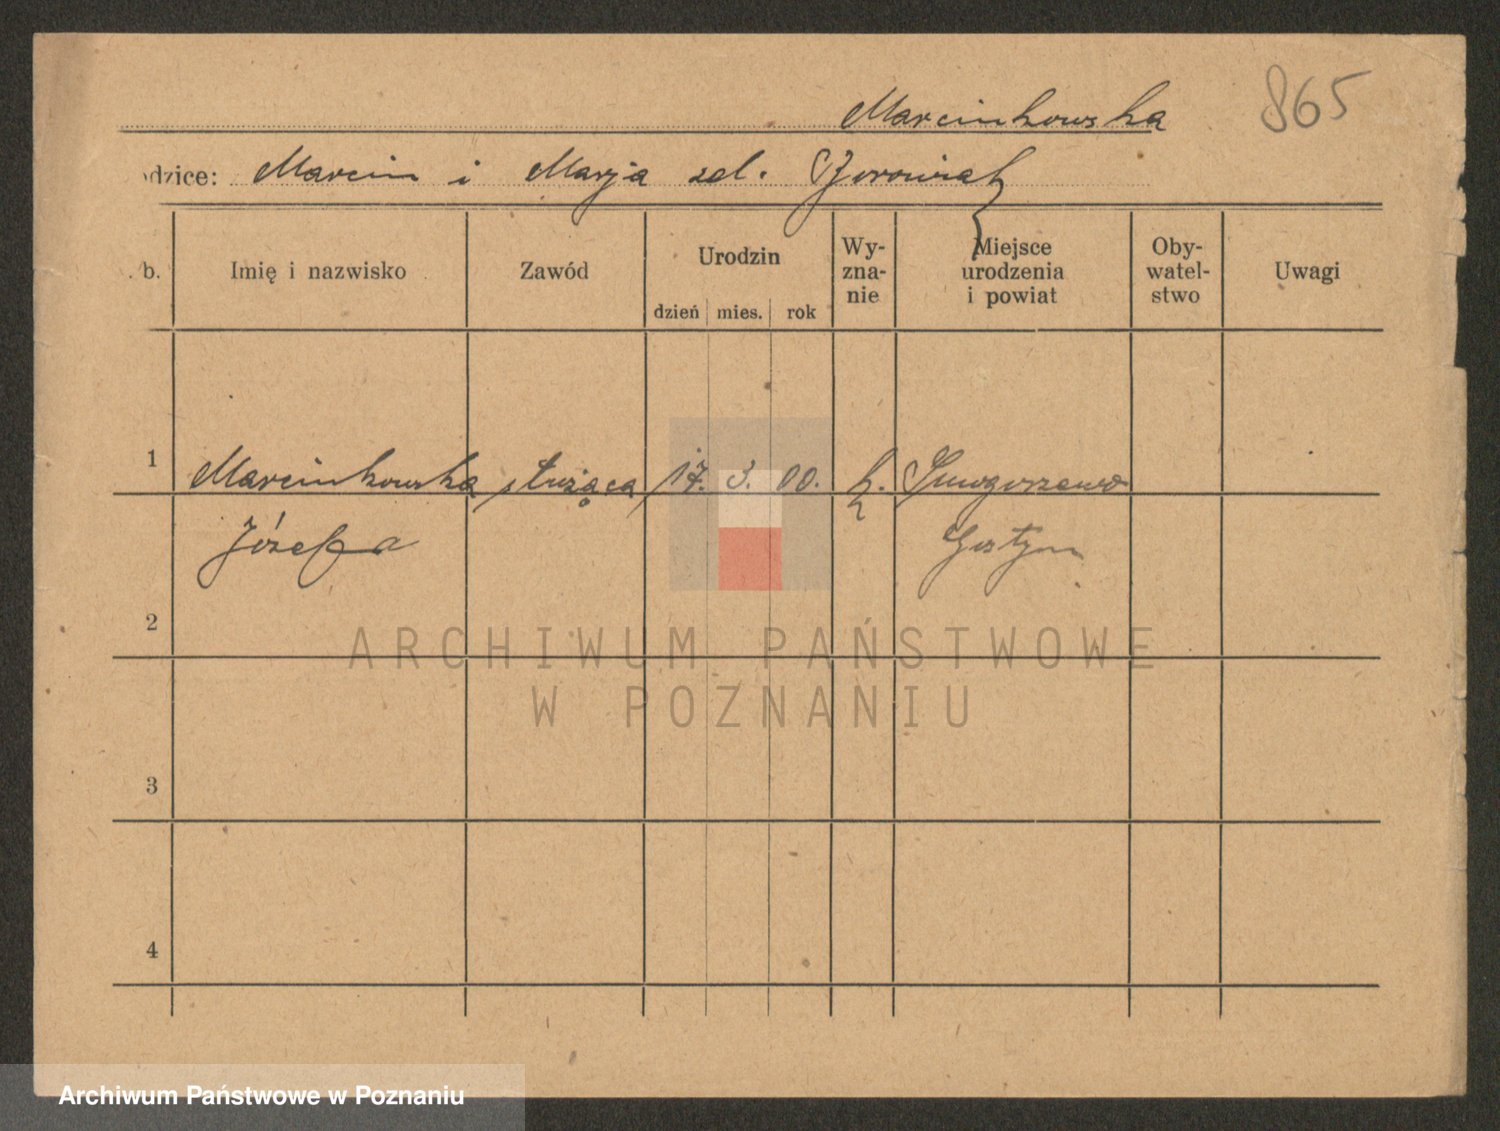 Marcinkowska 865
odzice: Marcin i Marja zel.
b. Imię i nazwisko Zawód Urodzin dzień mies. rok Wy-zna-nie Miejsce urodzenia i powiat Oby-watel-stwo Uwagi
1 Marcinkowska służąca 17. 3. 00. k. Smogorzewo
Józefa Gostyn
2
ARCHIWUM PAŃSTWOWE
W POZNANIU
3
4
Archiwum Państwowe w Poznaniu